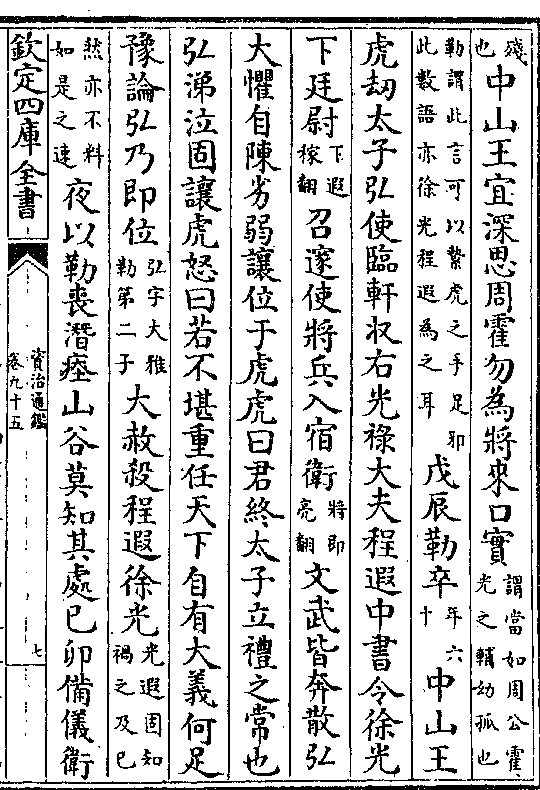 殘也中山王宜深思周霍勿為將來口實謂當如周公霍光之輔幼孤也
勒謂此言可以縶虎之手足耶此數語亦徐光程遐為之耳戊辰勒卒年六十中山王
虎劫太子弘使臨軒收右光祿大夫程遐中書令徐光
下廷尉下遐稼翻召邃使將兵入宿衛將即亮翻文武皆奔散弘
大懼自陳劣弱讓位于虎虎曰君終太子立禮之常也
弘涕泣固讓虎怒曰若不堪重任天下自有大義何足
豫論弘乃即位弘字大雅勒第二子大赦殺程遐徐光光遐固知禍之及已
然亦不料如是之速夜以勒喪潛瘞山谷莫知其處己卯備儀衛
欽定四庫全書
資治通鑑
卷九十五
七